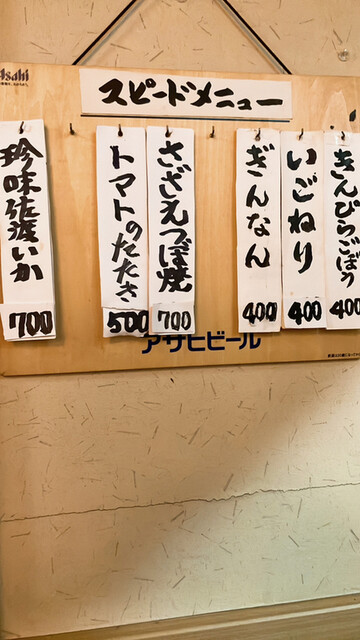 Asahi
スピードメニュー
きんぴらごぼう
400
いごねり
400
ぎんなん
400
さざえつぼ焼
700
トマトのたたき
500
珍味佐渡いか
700
アサヒビール